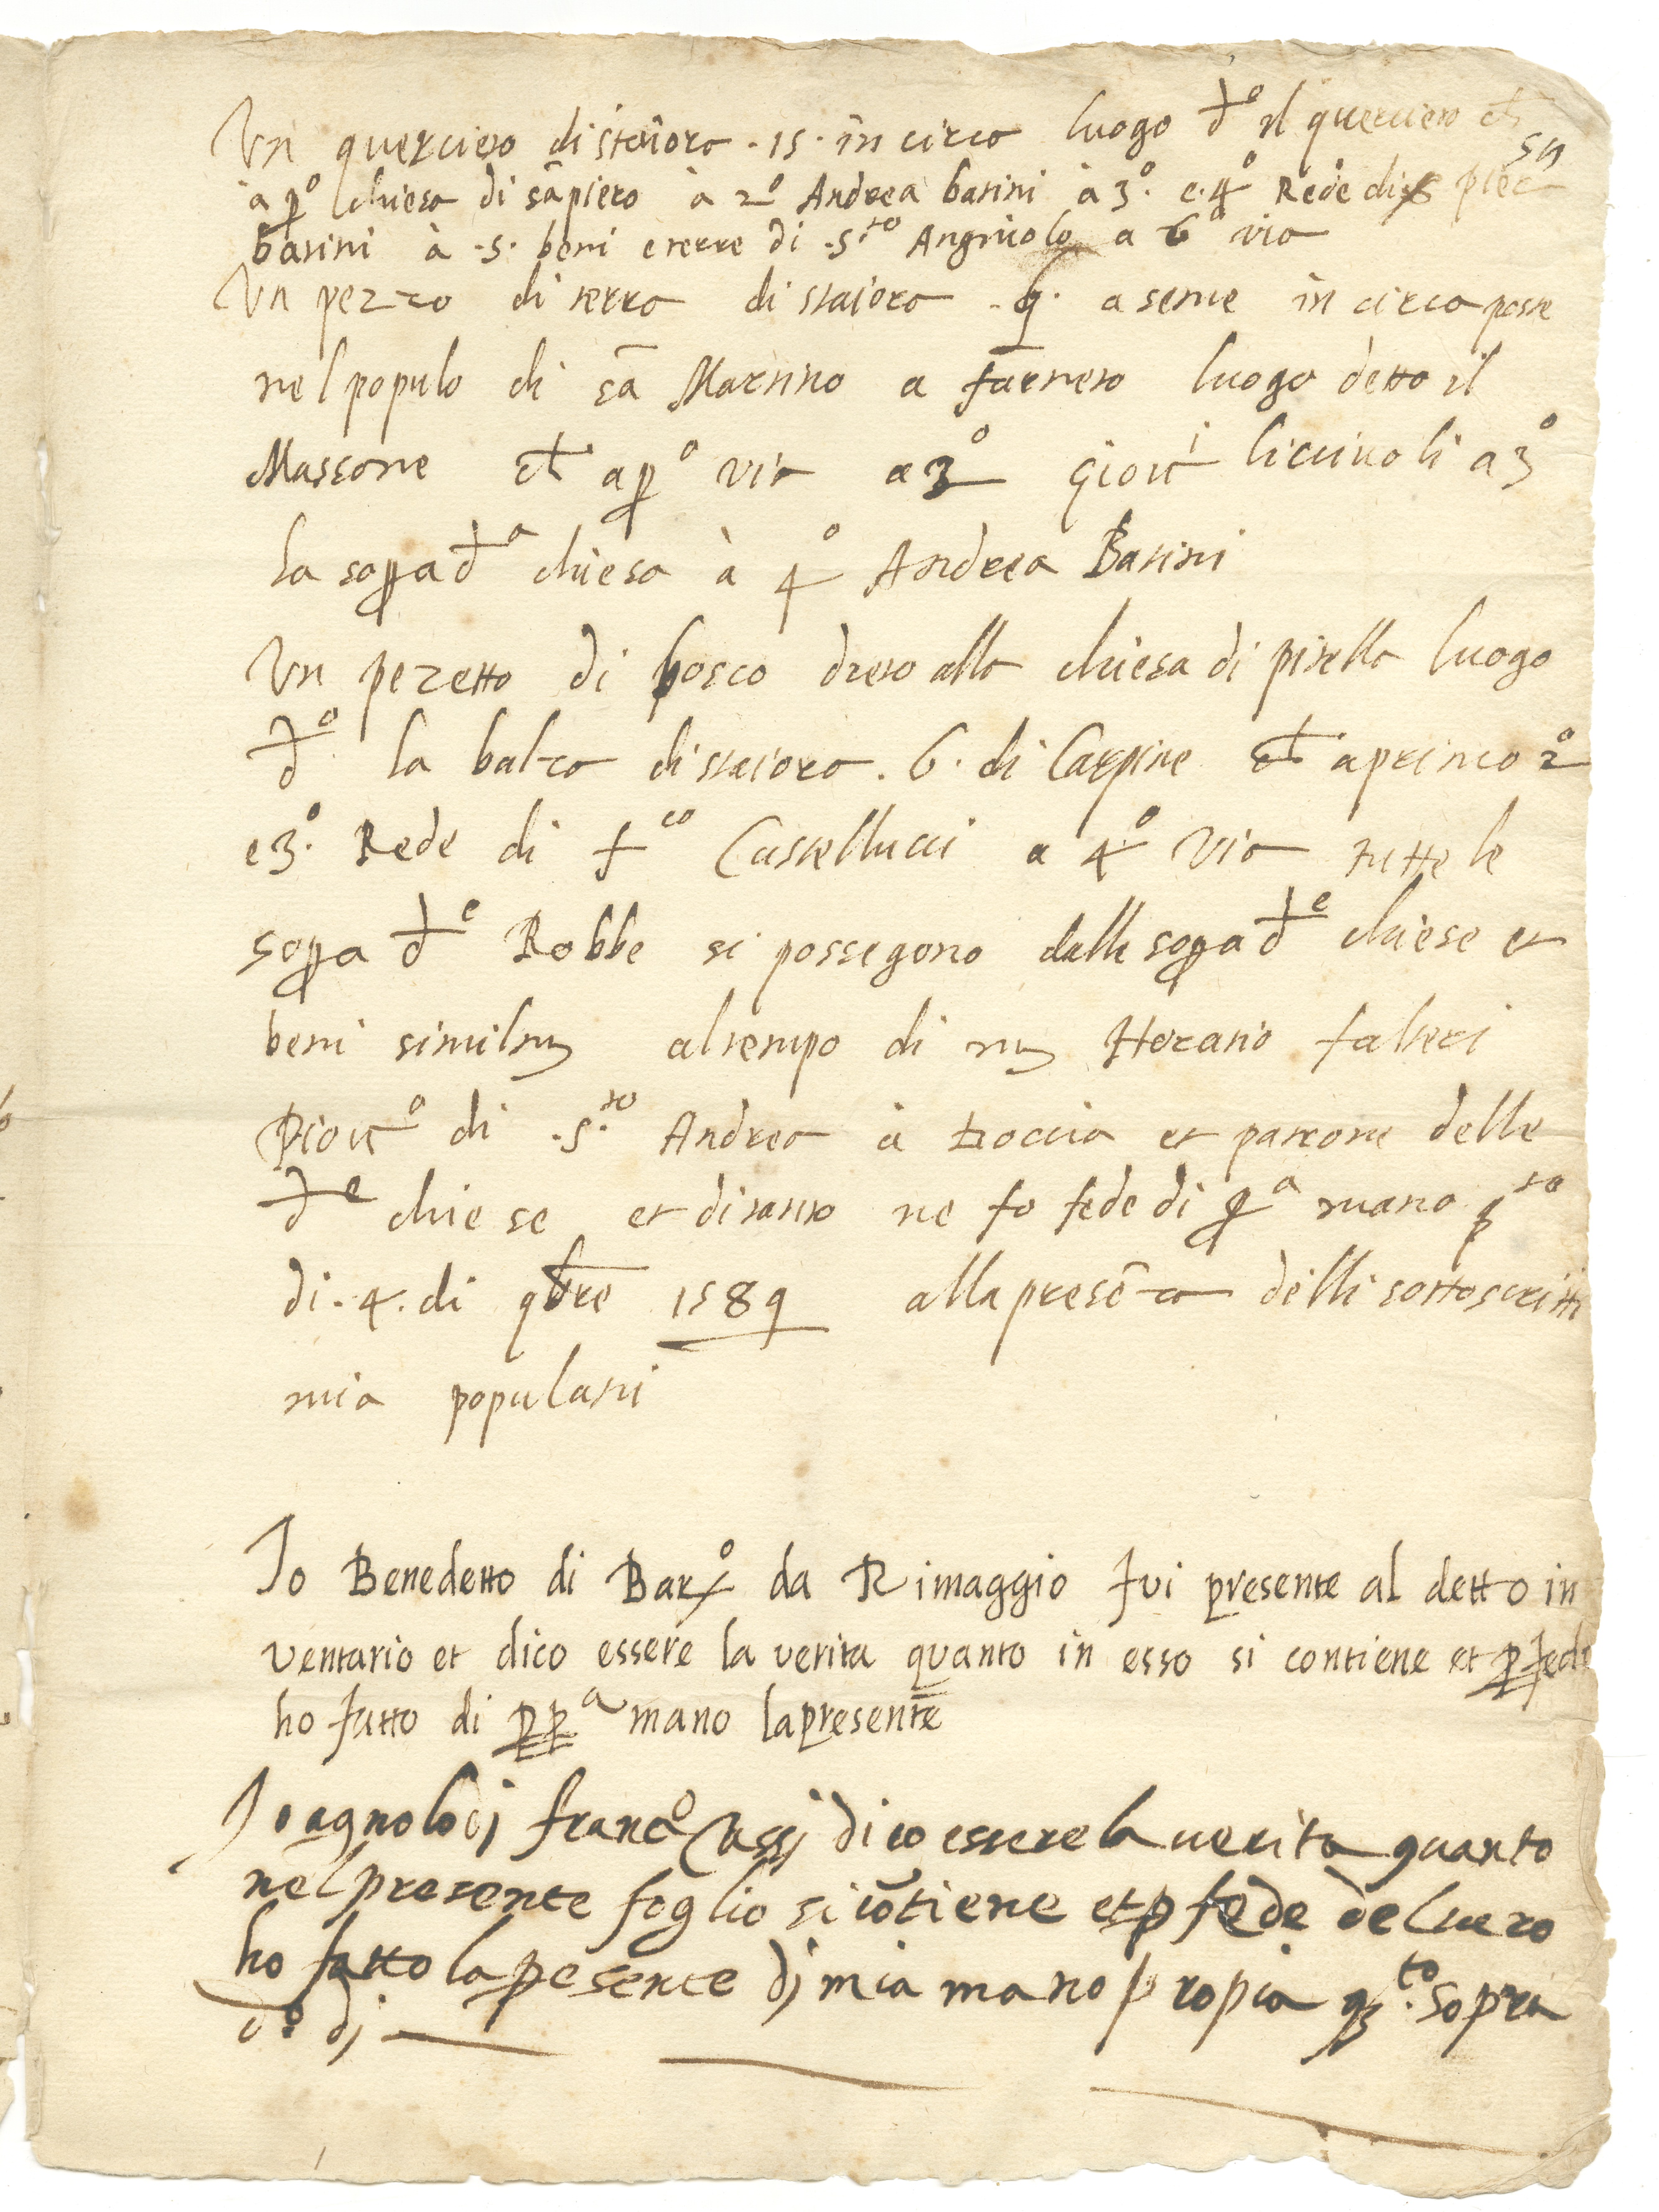 Un querciero di staiora .15. in circa luogo d.º il querciero cf
à pº chiesa di sã piero à 2º Andrea basini à 3º. e .4º Rede di piec
basini à .5. beni e terre di .S.to Angniolo a 6º via
Un pezzo di terra di staiora .9. a seme in circa poste
nel populo di sã Martino a farneto luogo detto il
Massone cf a pº via a 2º Giovi licciuoli a 3º
la soppa d.ª chiesa à 4º Andrea Basini
Un pezetto di bosco dreto alla chiesa di pitella luogo
d.º la balza di staiora .6. di Carpine cf a primo 2º
e 3º. Rede di f.co Castellucci a 4º Via tutte le
soppa d.e Robbe si possegono dalle soppa d.e chiese et
beni similm al tempo di m Horatio falteri
Piovº di .S.to Andrea à Doccia et patrone delle
d.e chiese et di tanto ne fo fede di ppª mano q.to
di .4. di 9bre 1589 alla presẽza delli sottoscritti
mia populani
Io Benedetto di Barº da Rimaggio fui presente al detto in
ventario et dico essere la verita quanto in esso si contiene et p fede
ho fatto di ppª mano la presente
Io agnolo dj francº Cassj dico essere la verita quanto
nel presente foglio si cõtiene et p fede del vero
ho fatto la pesente dj mia mano propia q.to sopra
d.º dj